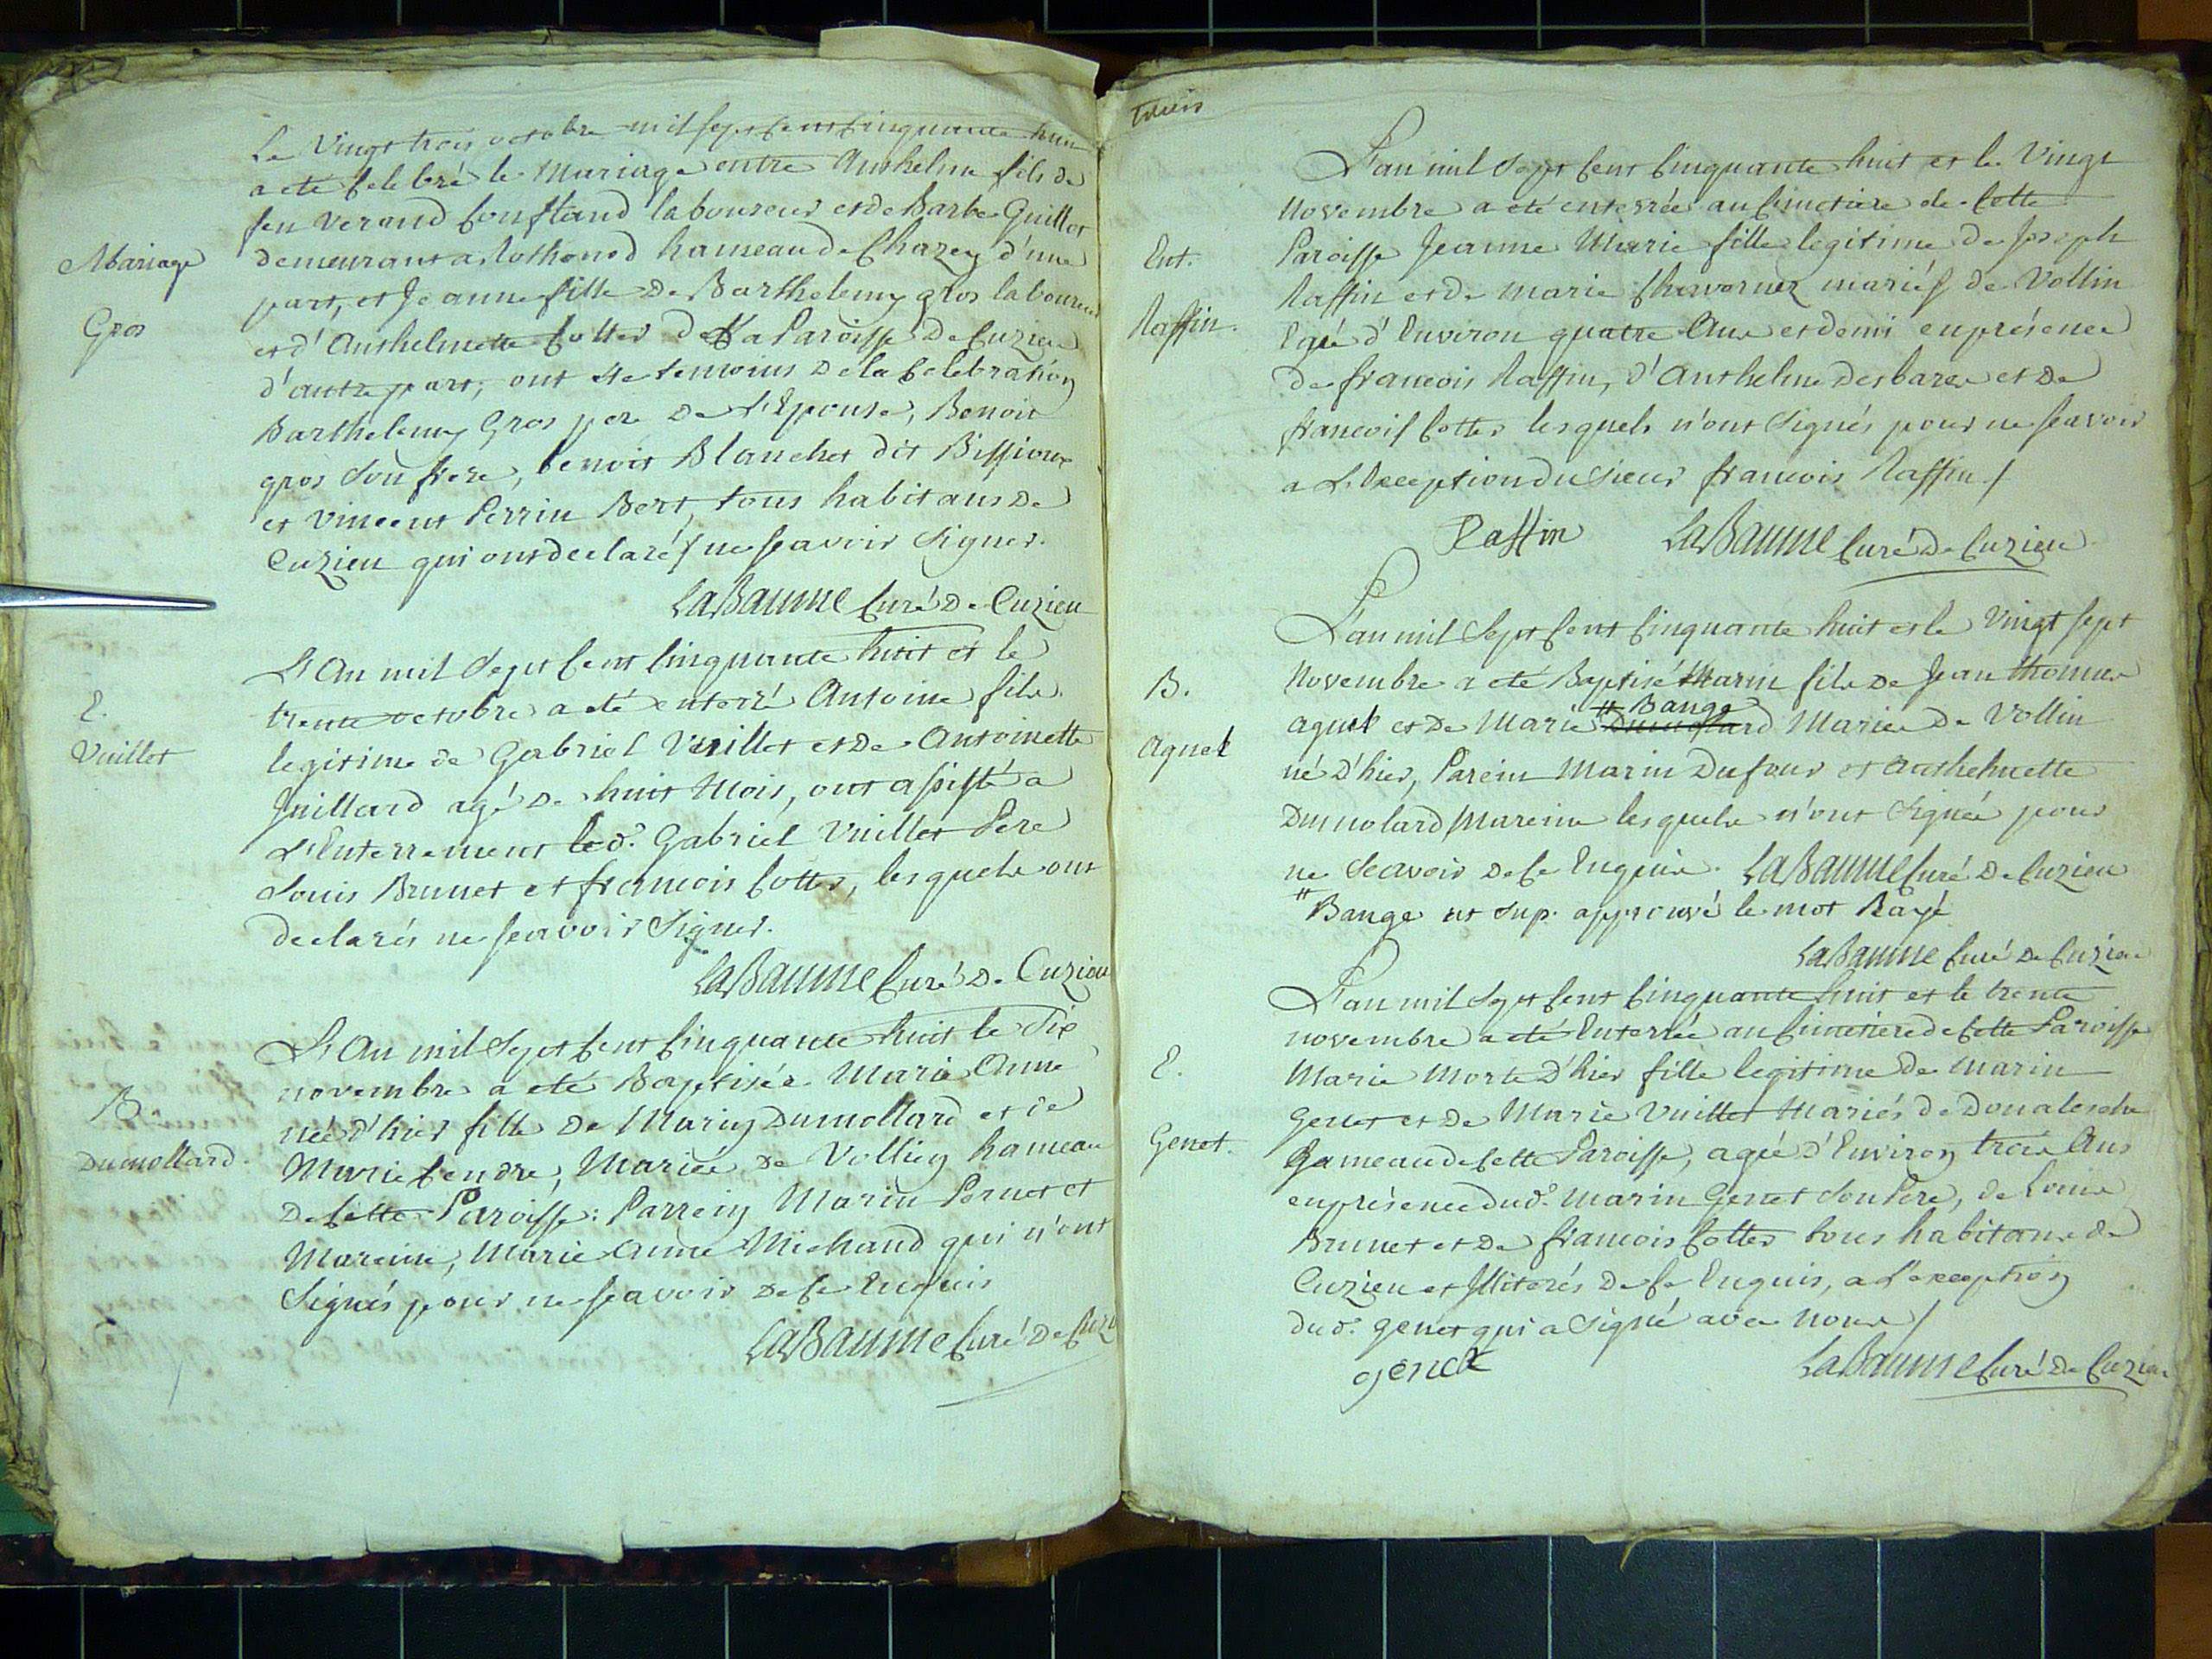 Le Vingt trois octobre mil sept cent cinquante huit
a eté celebré le Mariage entre Anthelme fils de
feu Verand Constand laboureur et de Barbe Guillot
demeurant a Rothonod hameau de Chazey d'une
part, et Jeanne fille De Barthelemy gros laboureur
et d'Anthelmette Cottet de la Paroisse De Cuzieu
d'autre part, ont ete temoins De la Celebration
Barthelemy Gros pere De L'Epouse, Benoit
gros Son frere, benoit Blanchet dit Bissioux
et Vincent Perrin Bert, tous habitans De
Cuzieu qui ont declaré ne scavoir Signer.
LaBaume Curé De Cuzieu
Mariage
Gros
L'An mil Sept Cent Cinquante huit et le
trente octobre a eté enterré Antoine fils
legitime de Gabriel Vuillet et De Antoinette
Juillard agé De huit Mois, ont assisté a
L'Enterrement led. Gabriel Vuillet Pere
Louis Brunet et francois Cottet, lesquels ont
declarés ne scavoir Signer.
LaBaume Curé De Cuzieu
E.
Vuillet
L'An mil Sept Cent Cinquante huit le Six
novembre a eté Baptisée Marie Anne
née d'hier fille De Marin Dumollard et de
Marie Cendre, Mariés de Vollien hameau
De Cette Paroisse: Parrein Marin Pernet et
Mareine, Marie Anne Michaud qui n'ont
Signés pour ne scavoir De Ce Enquis
LaBaume Curé De Cuzi
B.
Dumollard.
trois
L'an mil Sept Cent Cinquante huit et le Vingt
Novembre a eté enterrée au Cimetiere de Cette
Paroisse Jeanne Marie fille legitime De Joseph
Raffin et De Marie Chavornez mariés de Vollin
Egée d'Environ quatre Ans et demi en présence
De francois Raffin, d'Anthelme Desbarre et De
francois Cottet lesquels n'ont Signés pour ne scavoir
a L'Exception du Sieur francois Raffin /
Raffin LaBaume Curé De Cuzieu
Ent.
Raffin.
L'an mil Sept Cent Cinquante huit et le Vingt Sept
Novembre a eté Baptisé Marin fils De Jean thomas
# Bange
aguet et De Marie Dumollard Mariés De Vollin
né D'hier, Parein Marin Dufour et Anthelmette
Dumolard Mareine lesquels n'ont Signés pour
ne Scavoir De Ce Enquis. LaBaume Curé De Cuzieu
# Bange ut Sup. approuvé le mot Rayé
LaBaume Curé De Cuzieu
B.
Aguet
L'an mil Sept Cent Cinquante huit et le trente
novembre a eté Enterrée au Cimetiere de Cette Paroisse
Marie Morte D'hier fille legitime De Marin
Genet et De Marie Vuillet Mariés De
hameau de Cette Paroisse, agée d'Environ trois Ans
en présence dud. Marin Genet Son Pere, de Louis
Brunet et De francois Cottet tous habitans de
Cuzieu et Illiterés De Ce Enquis, a L'exception
dud. genet qui a Signé avec nous /
genet LaBaume Curé De Cuzieu
E.
Genet.